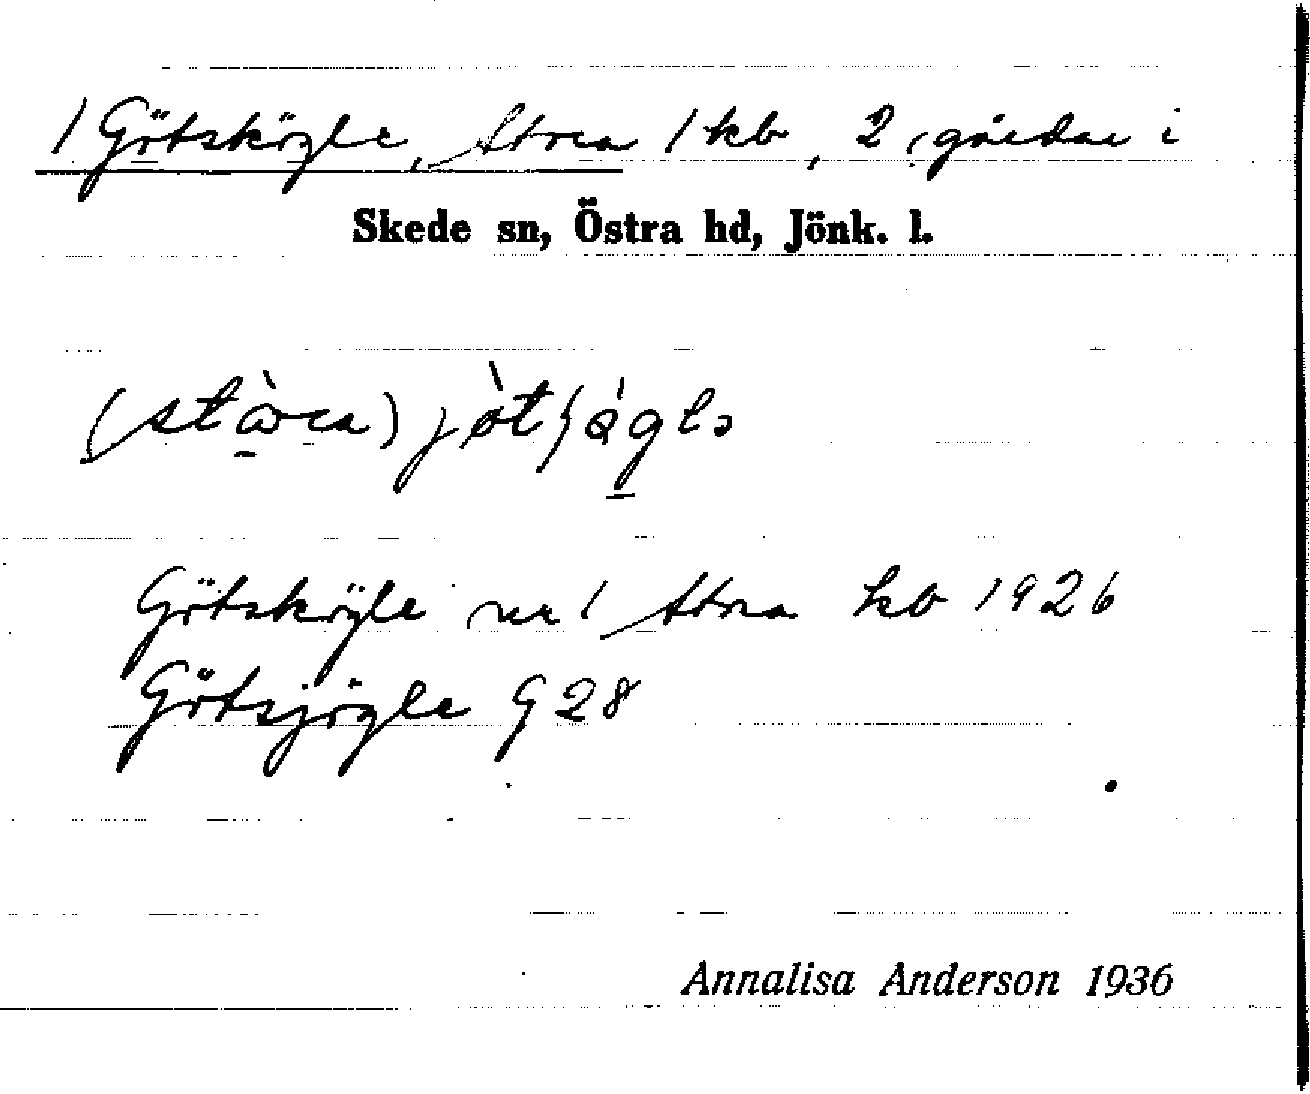 1 Götskögle, Stora 1 kb, 2 gårdar i
Skede sn, Östra hd, Jönk. l.
Götsköyle nr 1 Stora kb 1926
Götsjögle G 28
Annalisa Anderson 1936